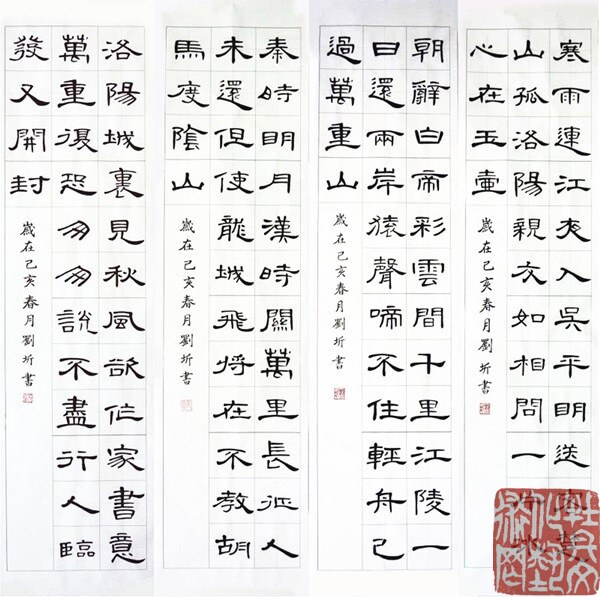 寒雨連江夜入吳平明送客楚
山孤洛陽親友如相問一片冰
心在玉壷
歲在己亥春月劉圻書
朝辭白帝彩雲間千里江陵一
日還兩岸猿聲啼不住輕舟已
過萬重山
歲在己亥春月劉圻書
秦時明月漢時關萬里長征人
未還但使龍城飛將在不教胡
馬度陰山
歲在己亥春月劉圻書
洛陽城裏見秋風欲作家書意
萬重復恐匆匆說不盡行人臨
發又開封
歲在己亥春月劉圻書